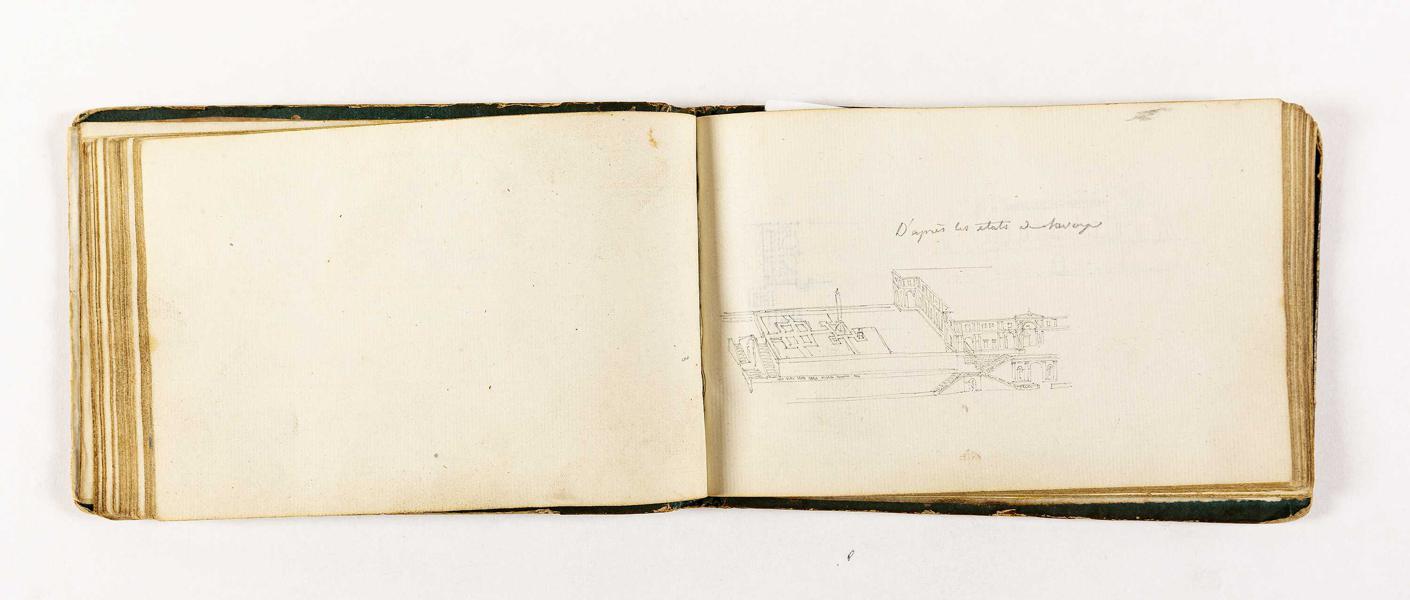 D'après les états de Savoye